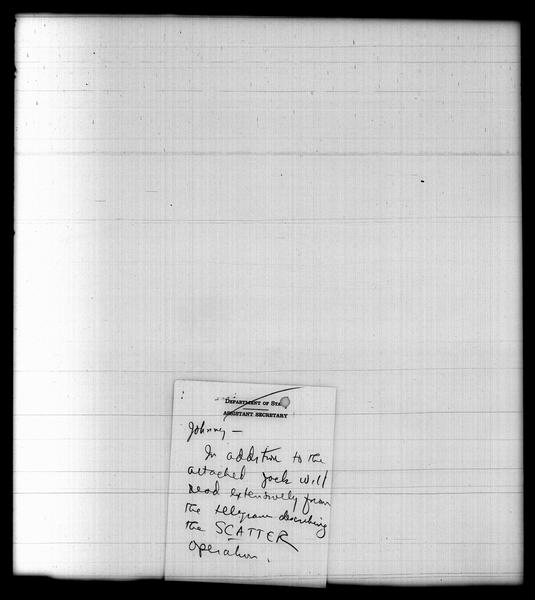 DEPARTMENT OF STATE
ASSISTANT SECRETARY
Johnny —
In addition to the
attached Jack will
read extensively from
the telegram describing
the SCATTER
operation.